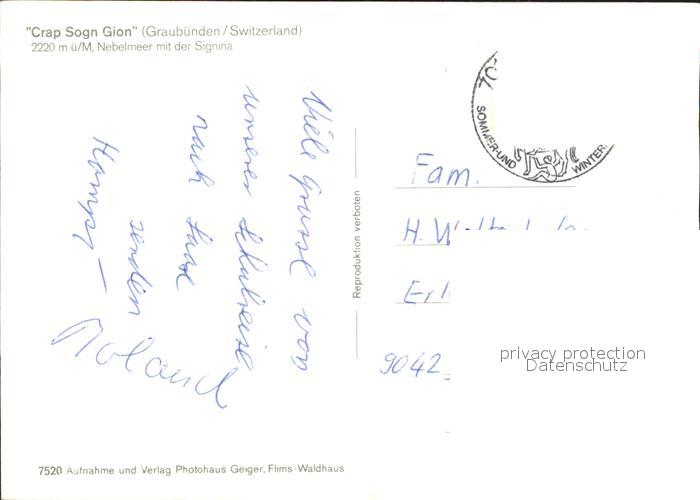 "Crap Sogn Gion" (Graubünden/Switzerland)
2220 m ü/M, Nebelmeer mit der Signina
Viele Grüsse von
unserer Schulreise
nach
senden
Roland
Reproduktion verboten
SOMMER-UND WINTER
Fam.
H.
9042
privacy protection
Datenschutz
7520 Aufnahme und Verlag Photohaus Geiger, Flims-Waldhaus